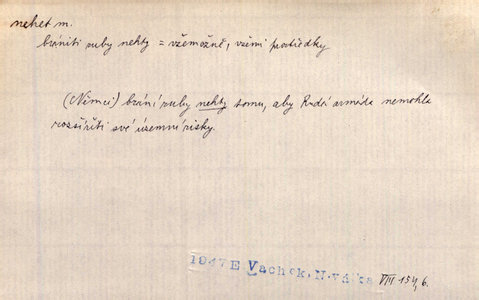 nehet m.
brániti zuby nehty = všemožně, všemi prostředky
(Němci) brání zuby nehty tomu, aby Rudá armáda nemohla
rozšířiti své územní zisky.
1947 E Vachek, N. válka VIII 154, 6.